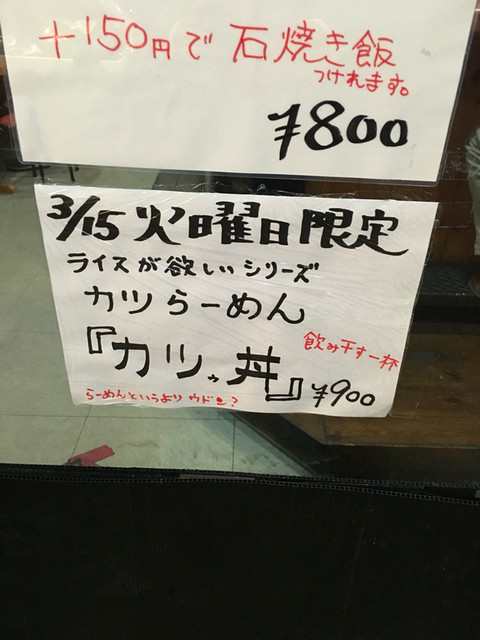 +150円で石焼き飯
つけれます。
¥800
3/15 火曜日限定
ライスが欲しいシリーズ
カツらーめん
飲み干す一杯
『カツ。丼』¥900
らーめんというよりウドン?